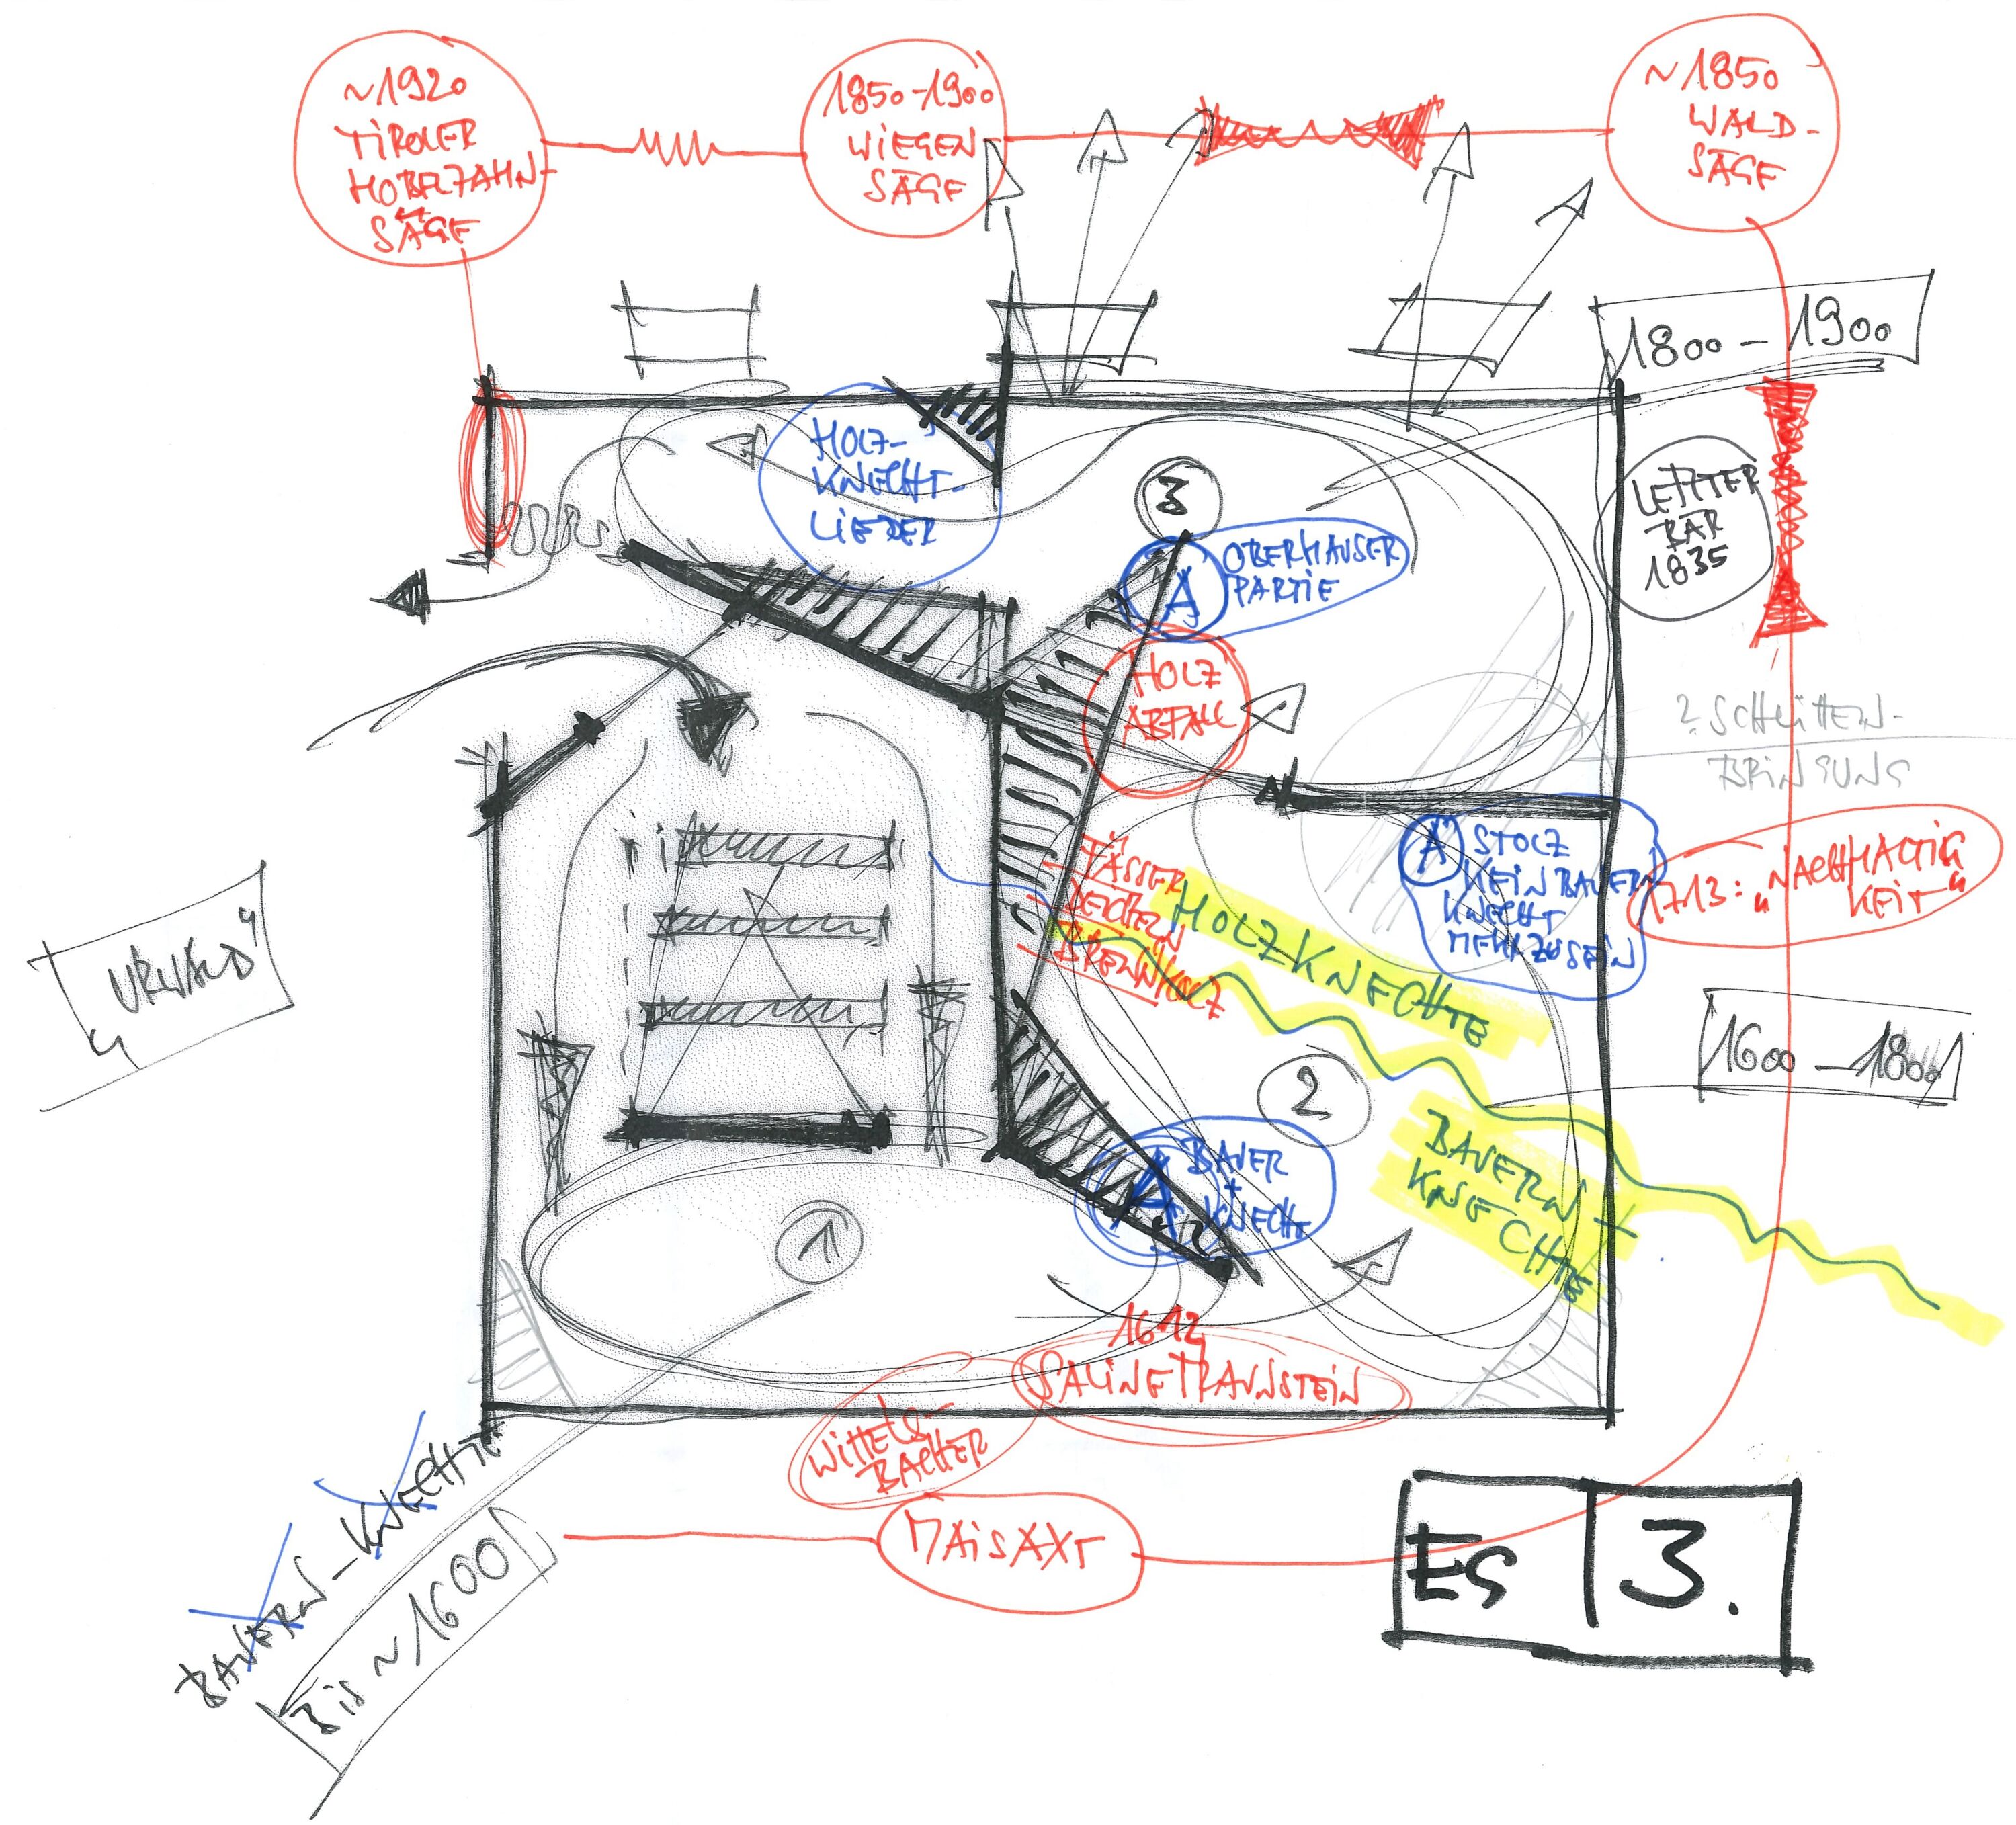 ~1920
TIROLER
HOBELZAHN-
SÄGE
1850-1900
WIEGEN
SÄGE
~1850
WALD-
SÄGE
1800-1900
HOLZ-
KNECHT-
LIEDER
3
LETZTER
BÄR
1835
A OBERHAUSER
PARTIE
HOLZ
ABFALL
? SCHLITTEN-
BRINGUNG
FÄSSER
DEICHELN
BRENNHOLZ
HOLZKNECHTE
A STOLZ
KEIN BAUERN
KNECHT
MEHR ZU SEIN
1713: "NACHHALTIG
KEIT"
"URWALD"
2
1600-1800
BAUERN +
KNECHTE
A BAUER
+
KNECHT
1
1612
SALINE TRAUNSTEIN
WITTELS-
BACHER
BAUERN-KNECHTE
Bis ~1600
MAISAXT
ES 3.